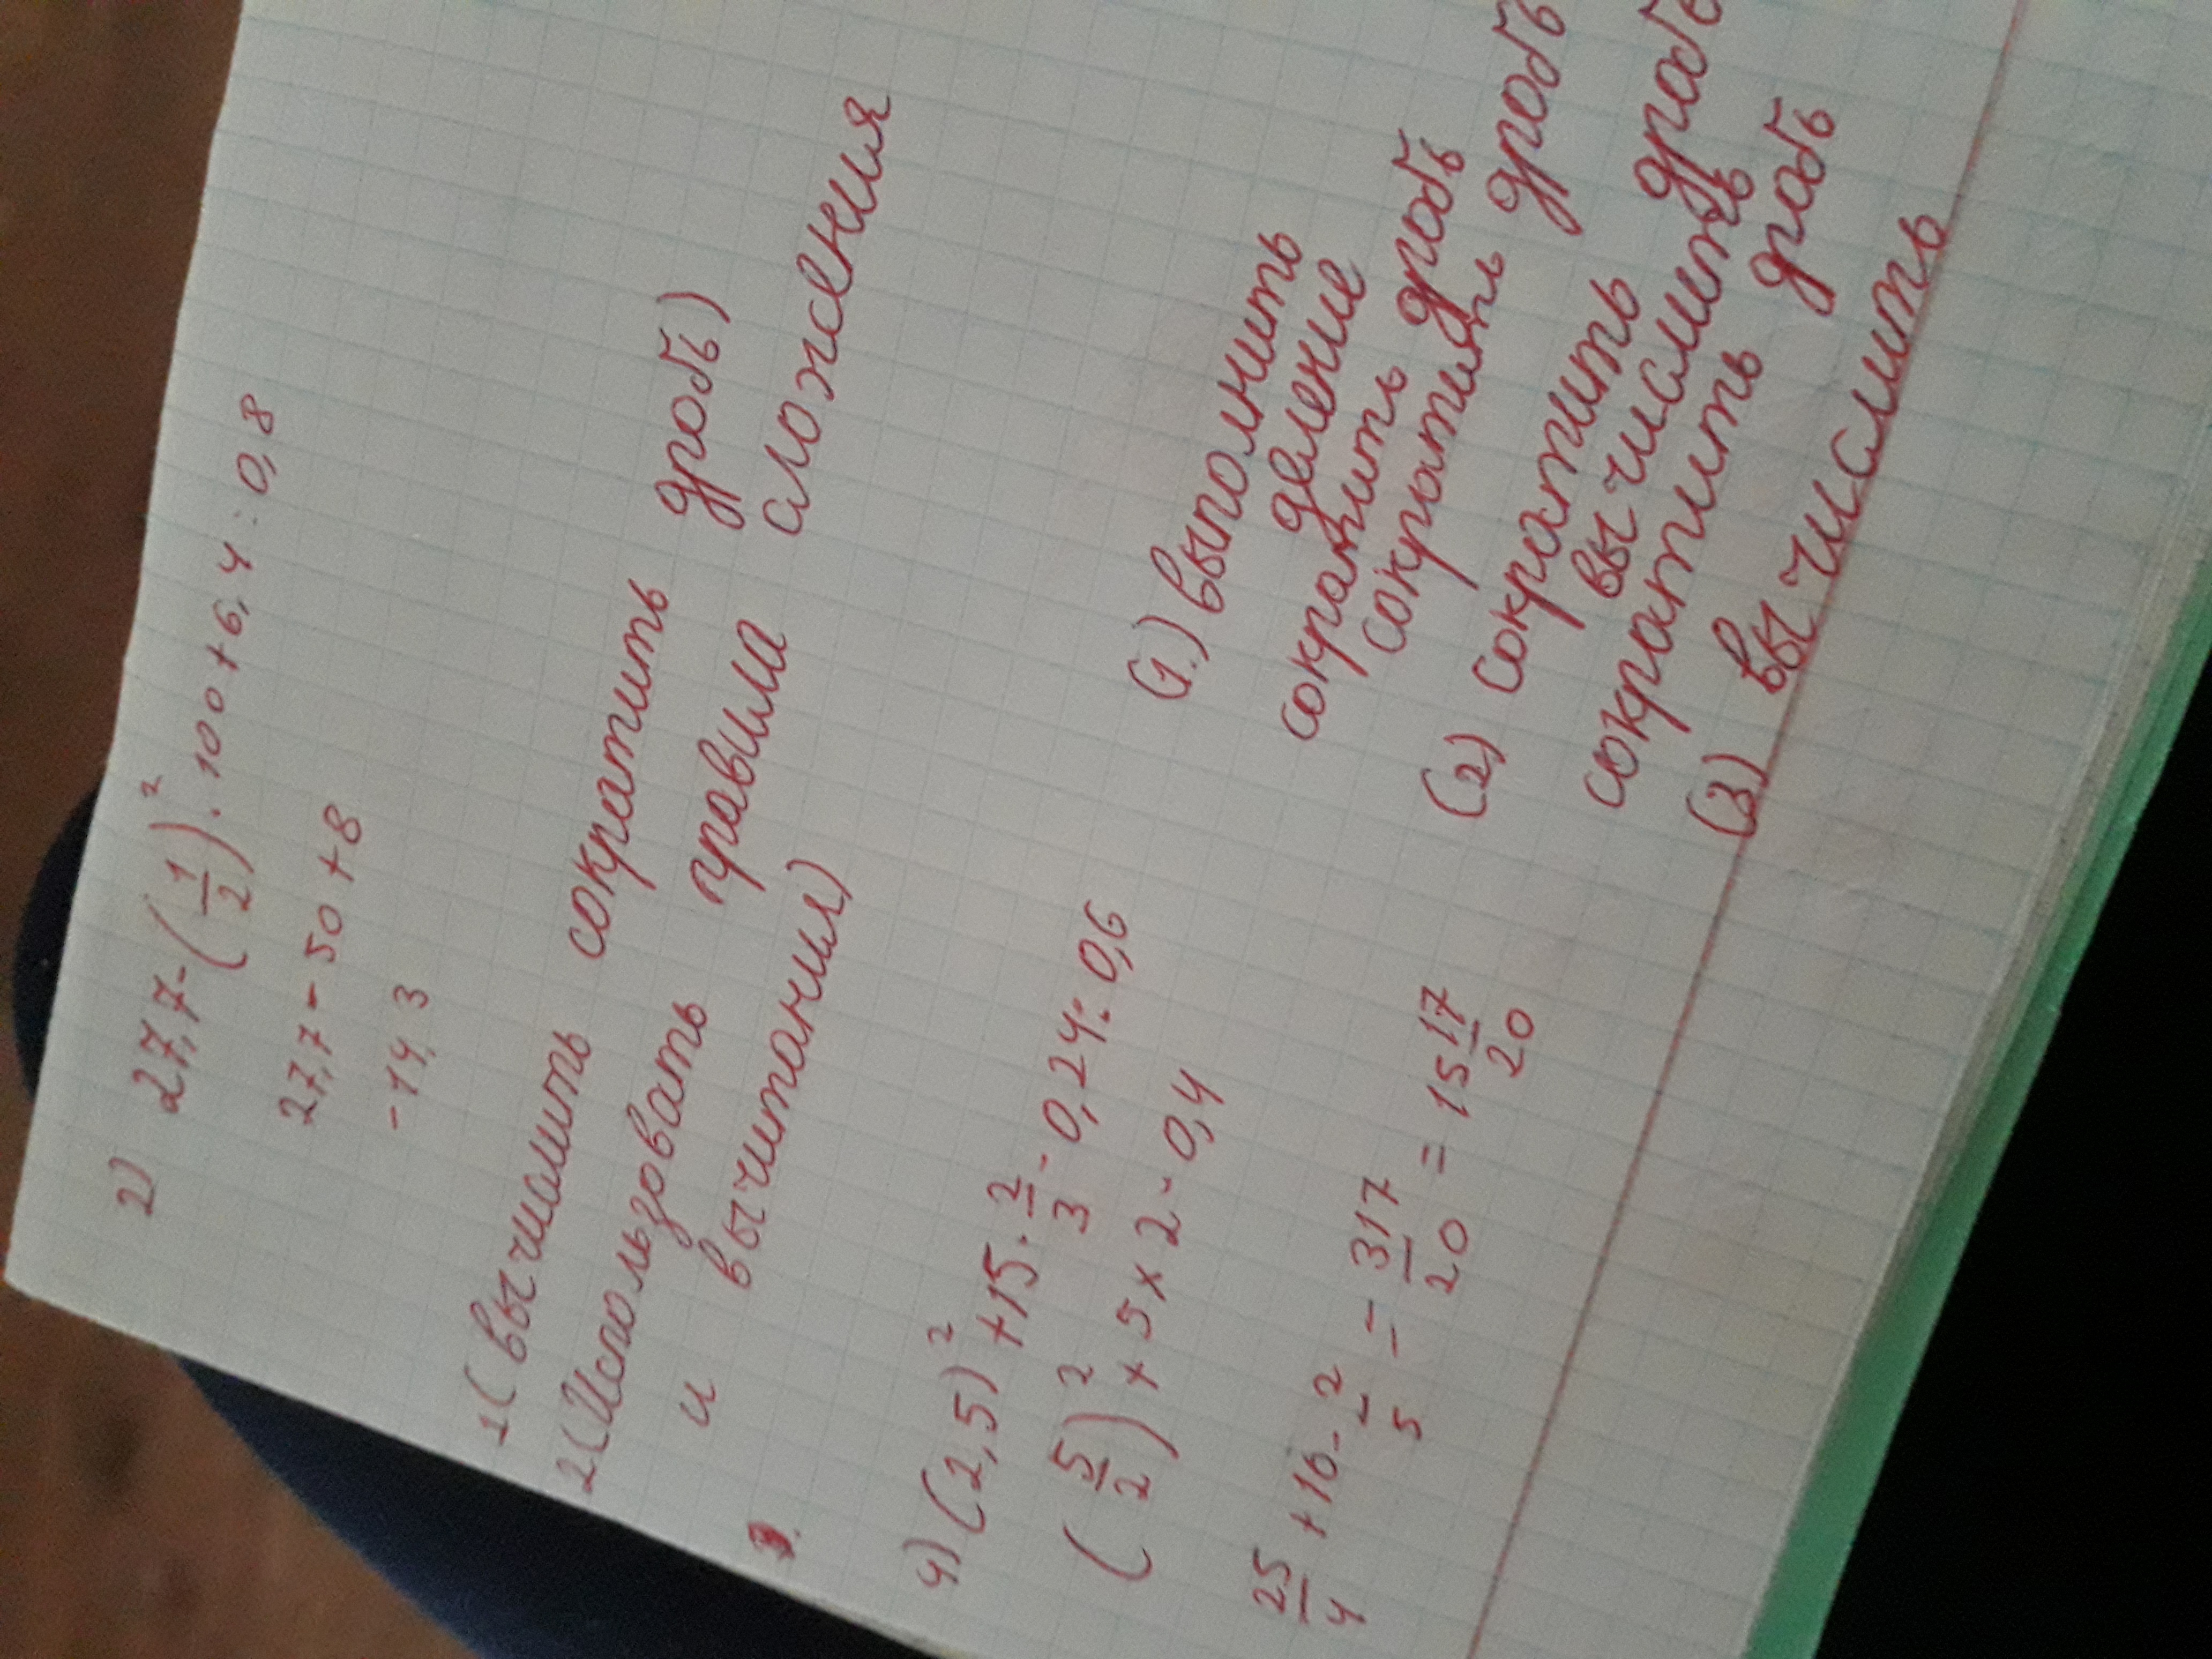 2) 27,7-(1/2)²·100+6,4:0,8
27,7-50+8
-14,3
1(вычислить сократить дробь)
2(Использовать правила сложения
и вычитания)
4) (2,5)²+15·2/3-0,24:0,6
(5/2)²+5×2-0,4
25/4+10-2/5=317/20=15 17/20
(1.) выполнить
деление
сократить дробь
сократить дробь
(2) сократить дробь
вычислить
сократить дробь
(3) вычислить